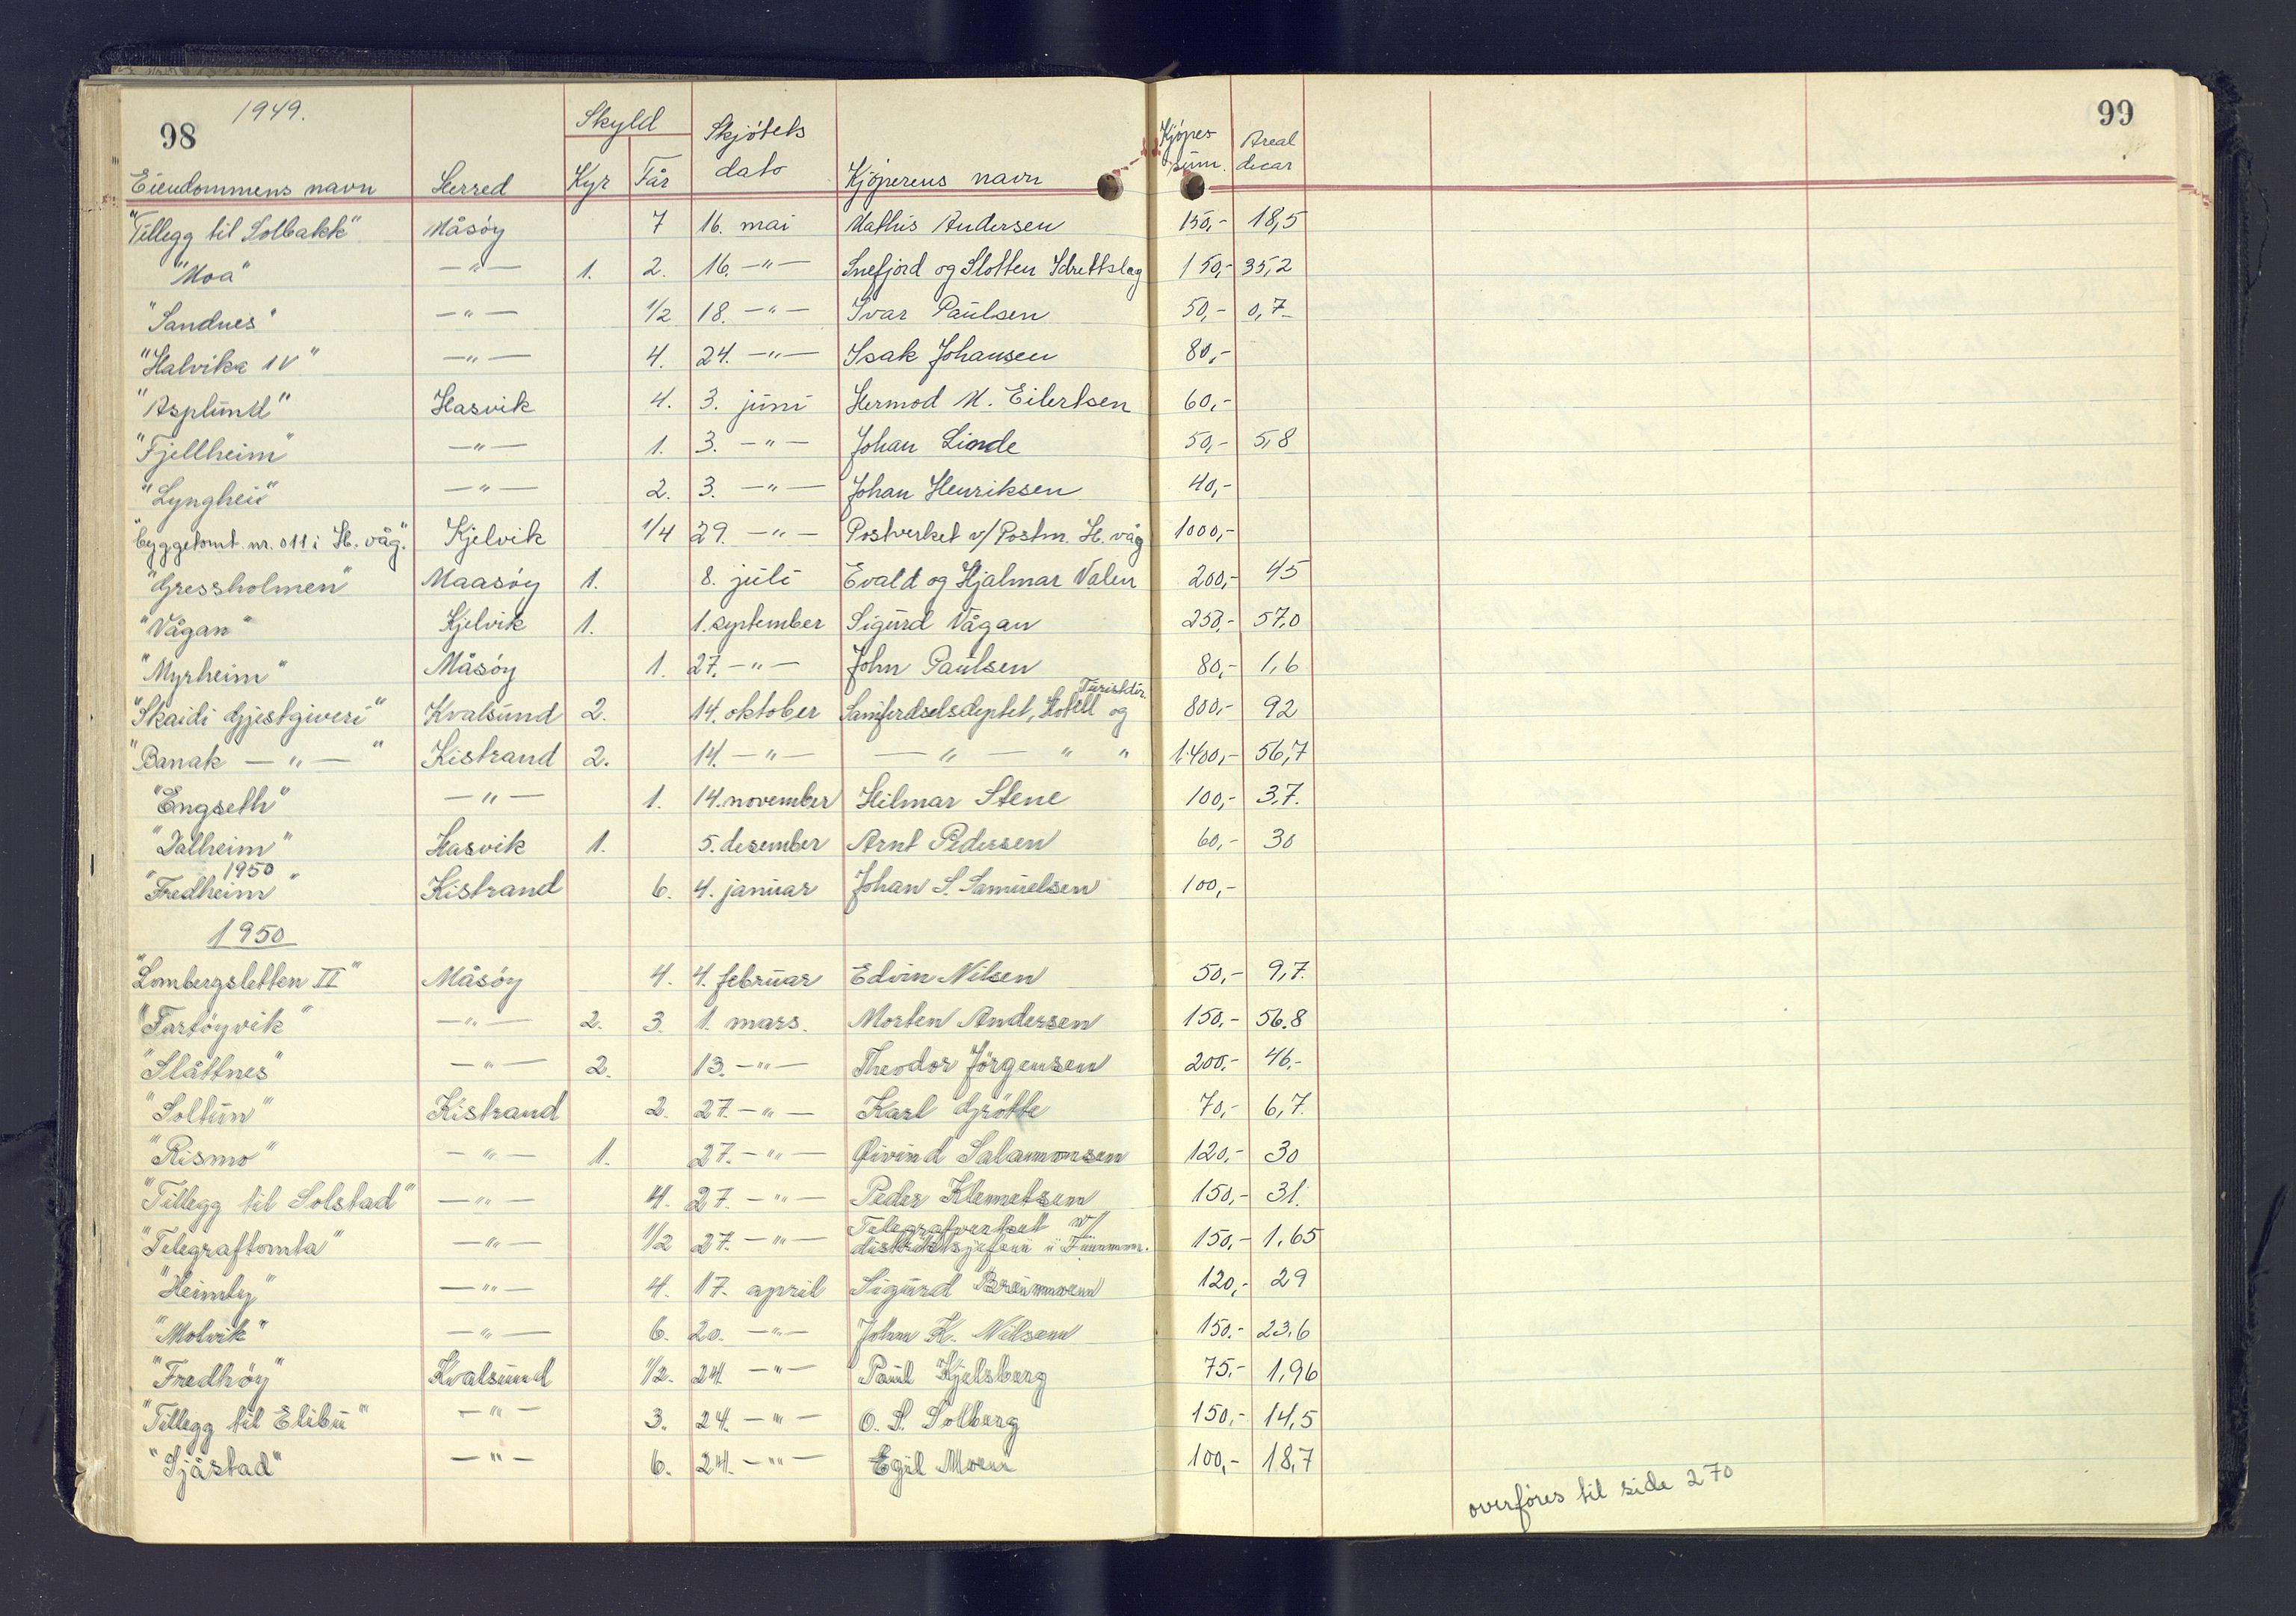 98 1949. 99
Skyld Skjötets Kjöpes Areal
Eiendommens navn Herred Kyr Får dato Kjöperens navn sum. decar
"Tillegg til Solbakk" Måsöy 7 16. mai Mathis Andersen 150,- 18,5
"Moa" —"— 1. 2. 16. —"— Snefjord og Slotten Idrettslag 150,- 35,2
"Sandnes" —"— 1/2 18. —"— Ivar Paulsen 50,- 0,7
"Halvika IV" —"— 4. 24. —"— Isak Johansen 80,-
"Asplund" Hasvik 4. 3. juni Hermod M. Eilertsen 60,-
"Fjellheim" —"— 1. 3. —"— Johan Linde 50,- 5,8
"Lynghei" —"— 2. 3. —"— Johan Henriksen 40,-
"Byggetomt nr. 011 i H. våg." Kjelvik 1/4 29. —"— Postverket v/ Postm. H. våg 1000,-
"Gressholmen" Maasöy 1. 8. juli Evald og Hjalmar Valen 200,- 45
"Vågan" Kjelvik 1. 1. september Sigurd Vågan 250,- 57,0
"Myrheim" Måsöy 1. 27. —"— John Paulsen 80,- 1,6
Turistdir.
"Skaidi Gjestgiveri" Kvalsund 2. 14. oktober Samferdselsdeptet, Hotell og 800,- 92
"Banak —"—" Kistrand 2. 14. —"— —"— " " 1.400,- 56,7
"Engseth" —"— 1. 14. november Hilmar Stene 100,- 3,7.
"Dalheim" Hasvik 1. 5. desember Arnt Pedersen 60,- 30
1950
"Fredheim" Kistrand 6. 4. januar Johan S. Samuelsen 100,-
1950
"Lombergsletten II" Måsöy 4. 4. februar Edvin Nilsen 50,- 9,7.
"Fartöyvik" —"— 2. 3. 1. mars. Morten Andersen 150,- 56.8
"Slåttnes" —"— 2. 13. —"— Theodor Jörgensen 200,- 46,-
"Soltun" Kistrand 2. 27. —"— Karl Grötte 70,- 6,7.
"Rismo" —"— 1. 27. —"— Øivind Salamonsen 120,- 30
"Tillegg til Solstad" —"— 4. 27. —"— Peder Klemetsen 150,- 31.
Telegrafverket v/
"Telegraftomta" —"— 1/2 27. —"— distriktsjefen i Finnm. 150,- 1.65
"Heimly" —"— 4. 17. april Sigurd 120,- 29
"Molvik" —"— 6. 20. —"— Johan K. Nilsen 150.- 23,6
"Fredhöy" Kvalsund 1/2. 24. —"— Paul Kjelsberg 75,- 1,96
"Tillegg til Elibu" —"— 3. 24. —"— O. S. Solberg 150,- 14,5
"Sjåstad" —"— 6. 24. —"— Egil Moen 100,- 18,7
overföres til side 270